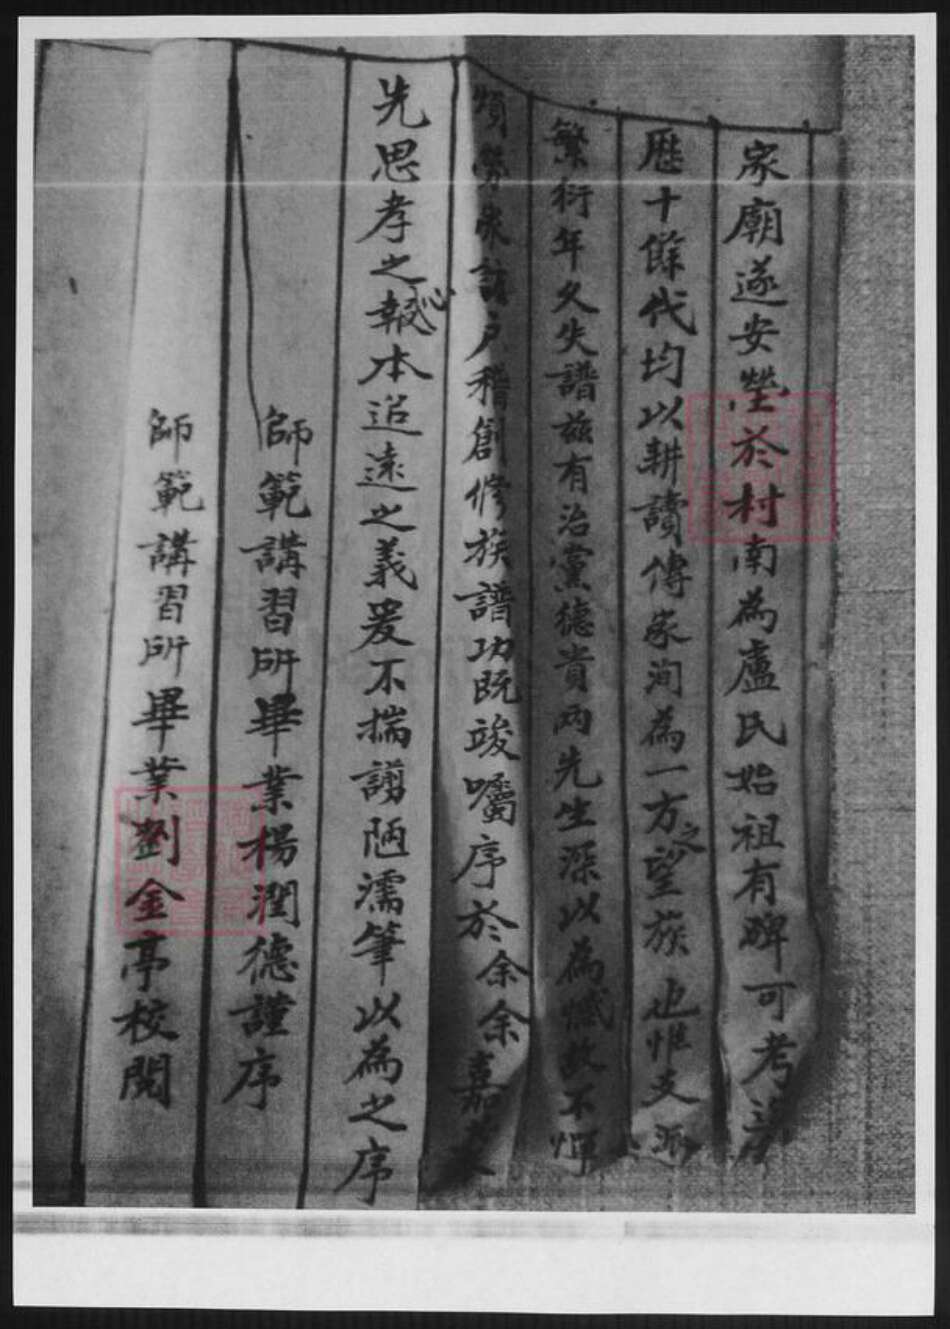 家廟遂安塋於村南為盧氏始祖有碑可考
歷十餘代均以耕讀傳家洵為一方之望族也惟支派
繁衍年久失譜茲有治黨德貴兩先生深以為憾故不憚
煩勞來訪戶稽創修族譜功既竣囑序於余余嘉其
先思孝之心報本追遠之義爰不揣譾陋濡筆以為之序
師範講習所畢業楊潤德謹序
師範講習所畢業劉金亭校閱